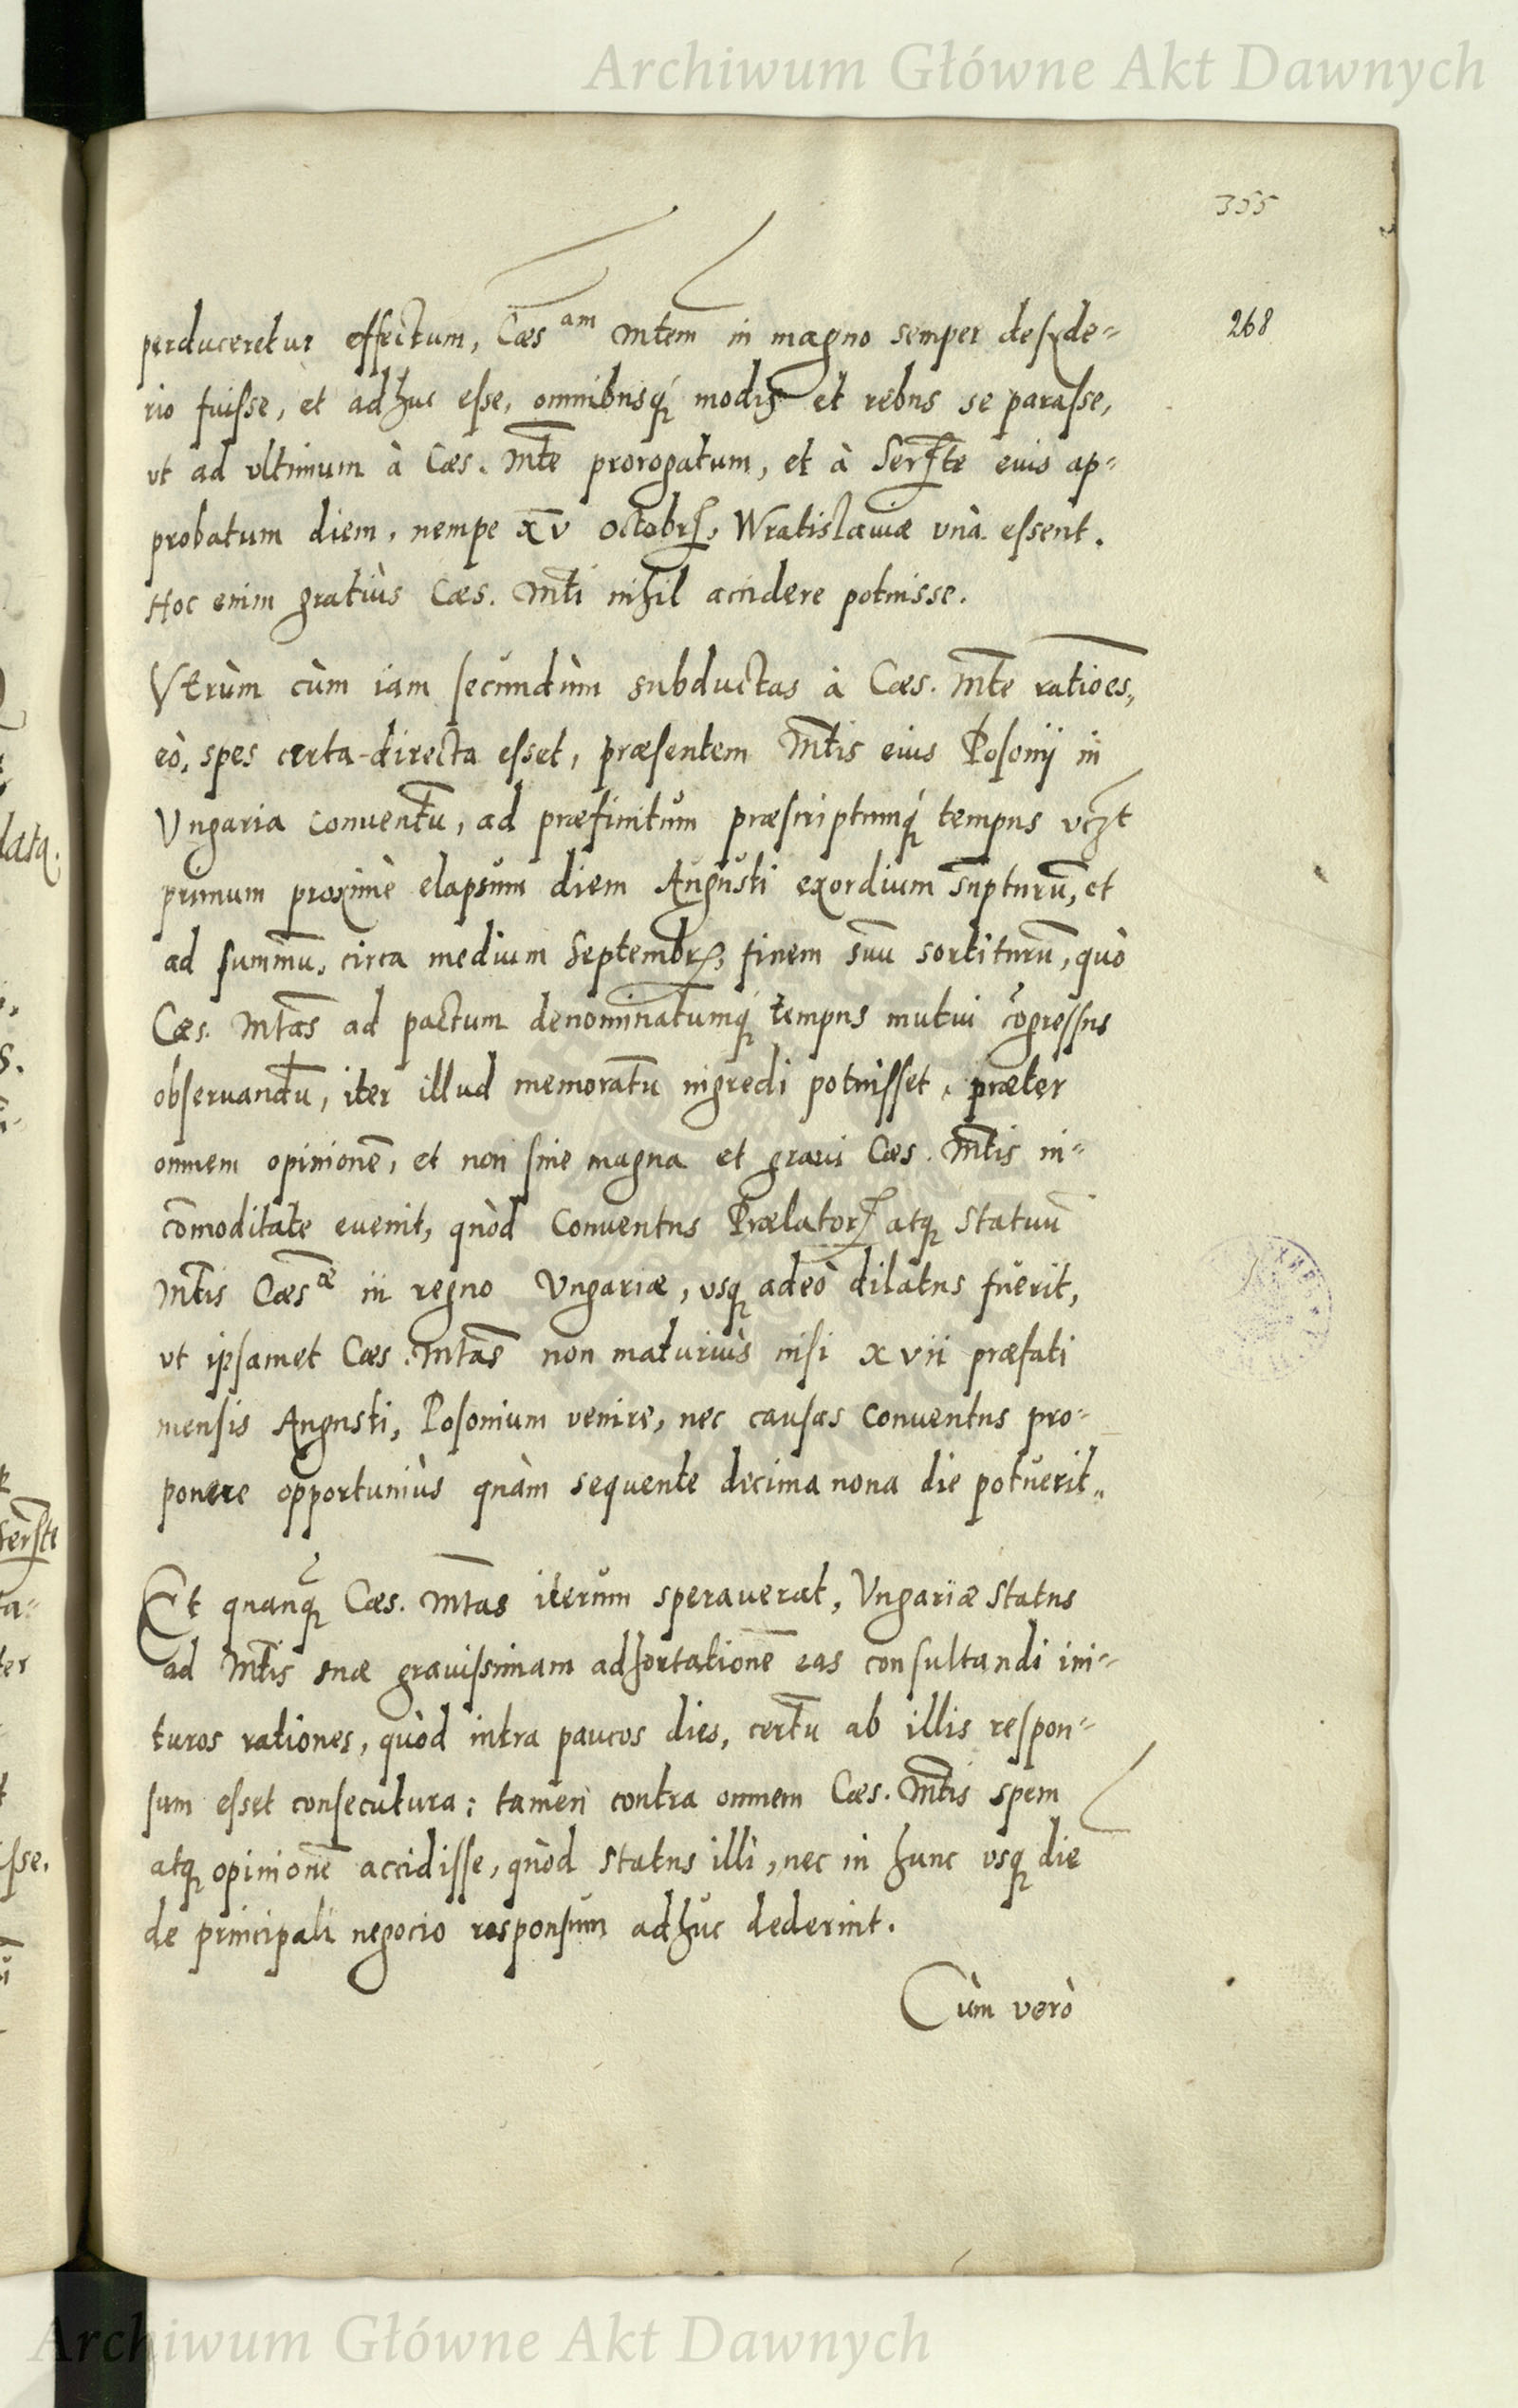 Archiwum Główne Akt Dawnych
355
268
perduceretur effectum, Cæs^am Mtem in magno semper desyde-
rio fuisse, et adhuc esse, omnibusq́ modis et rebus se parasse,
vt ad vltimum à Cæs. Mte prorogatum, et à Serte eius ap-
probatum diem, nempe xv Octobris, Wratislauiæ vnà essent.
Hoc enim gratiùs Cæs. Mti nihil accidere potuisse.
Verùm cùm iam secundùm subductas à Cæs. Mte ratioēs,
eò, spes certa directa esset, præsentem Mtis eius Posonij in
Vngaria conuentū, ad præfinitum præscriptumq́ tempus vczt
primum proximè elapsum diem Augusti exordium sūpturū, et
ad summū, circa medium Septembris, finem suū sortiturū, quò
Cæs. Mtas ad pactum denominatumq́ tempus mutui cōgressus
obseruandū, iter illud memoratū ingredi potuisset, præter
omnem opinionē, et non sine magna et graui Cæs. Mtis in-
cōmoditate euenit, quòd Conuentus Prælator, atq statuū
Mtis Cæs^æ in regno Vngariæ, vsq adeò dilatus fuerit,
vt ipsamet Cæs. Mtas non maturiùs nisi xvii præfati
mensis Augusti, Posonium venire, nec causas Conuentus pro-
ponere opportuniùs quàm sequente decima nona die potuerit.
Et quanq Cæs. Mtas iterum sperauerat, Vngariæ Status
ad Mtis suæ grauissimam adhortationē eas consultandi ini-
turos rationes, quòd intra paucos dies, certū ab illis respon-
sum esset consecutura: tamen contra omnem Cæs. Mtis spem
atq opinionē accidisse, quòd Status illi, nec in hunc vsq diē
de principali negocio responsum adhuc dederint.
Cùm verò
Archiwum Główne Akt Dawnych